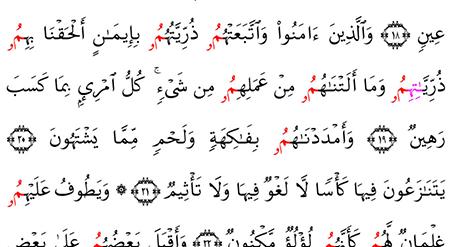 عِينٍ ﴿١٨﴾ وَٱلَّذِينَ ءَامَنُوا۟ وَٱتَّبَعَتْهُمُۥ ذُرِّيَّتُهُمُۥ بِإِيمَٰنٍ أَلْحَقْنَا بِهِمُۥ
ذُرِّيَّتَهُمُۥ وَمَا أَلَتْنَٰهُمُۥ مِنْ عَمَلِهِمُۥ مِن شَىْءٍ ۚ كُلُّ ٱمْرِئٍۭ بِمَا كَسَبَ
رَهِينٌ ﴿١٩﴾ وَأَمْدَدْنَٰهُمُۥ بِفَٰكِهَةٍ وَلَحْمٍ مِّمَّا يَشْتَهُونَ ﴿٢٠﴾
يَتَنَٰزَعُونَ فِيهَا كَأْسًا لَّا لَغْوٌ فِيهَا وَلَا تَأْثِيمٌ ﴿٢١﴾ ۞ وَيَطُوفُ عَلَيْهِمُۥ
غِلْمَانٌ لَّهُمُۥ كَأَنَّهُمُۥ لُؤْلُؤٌ مَّكْنُونٌ ﴿٢٢﴾ وَأَقْبَلَ بَعْضُهُمُۥ عَلَىٰ بَعْضٍ